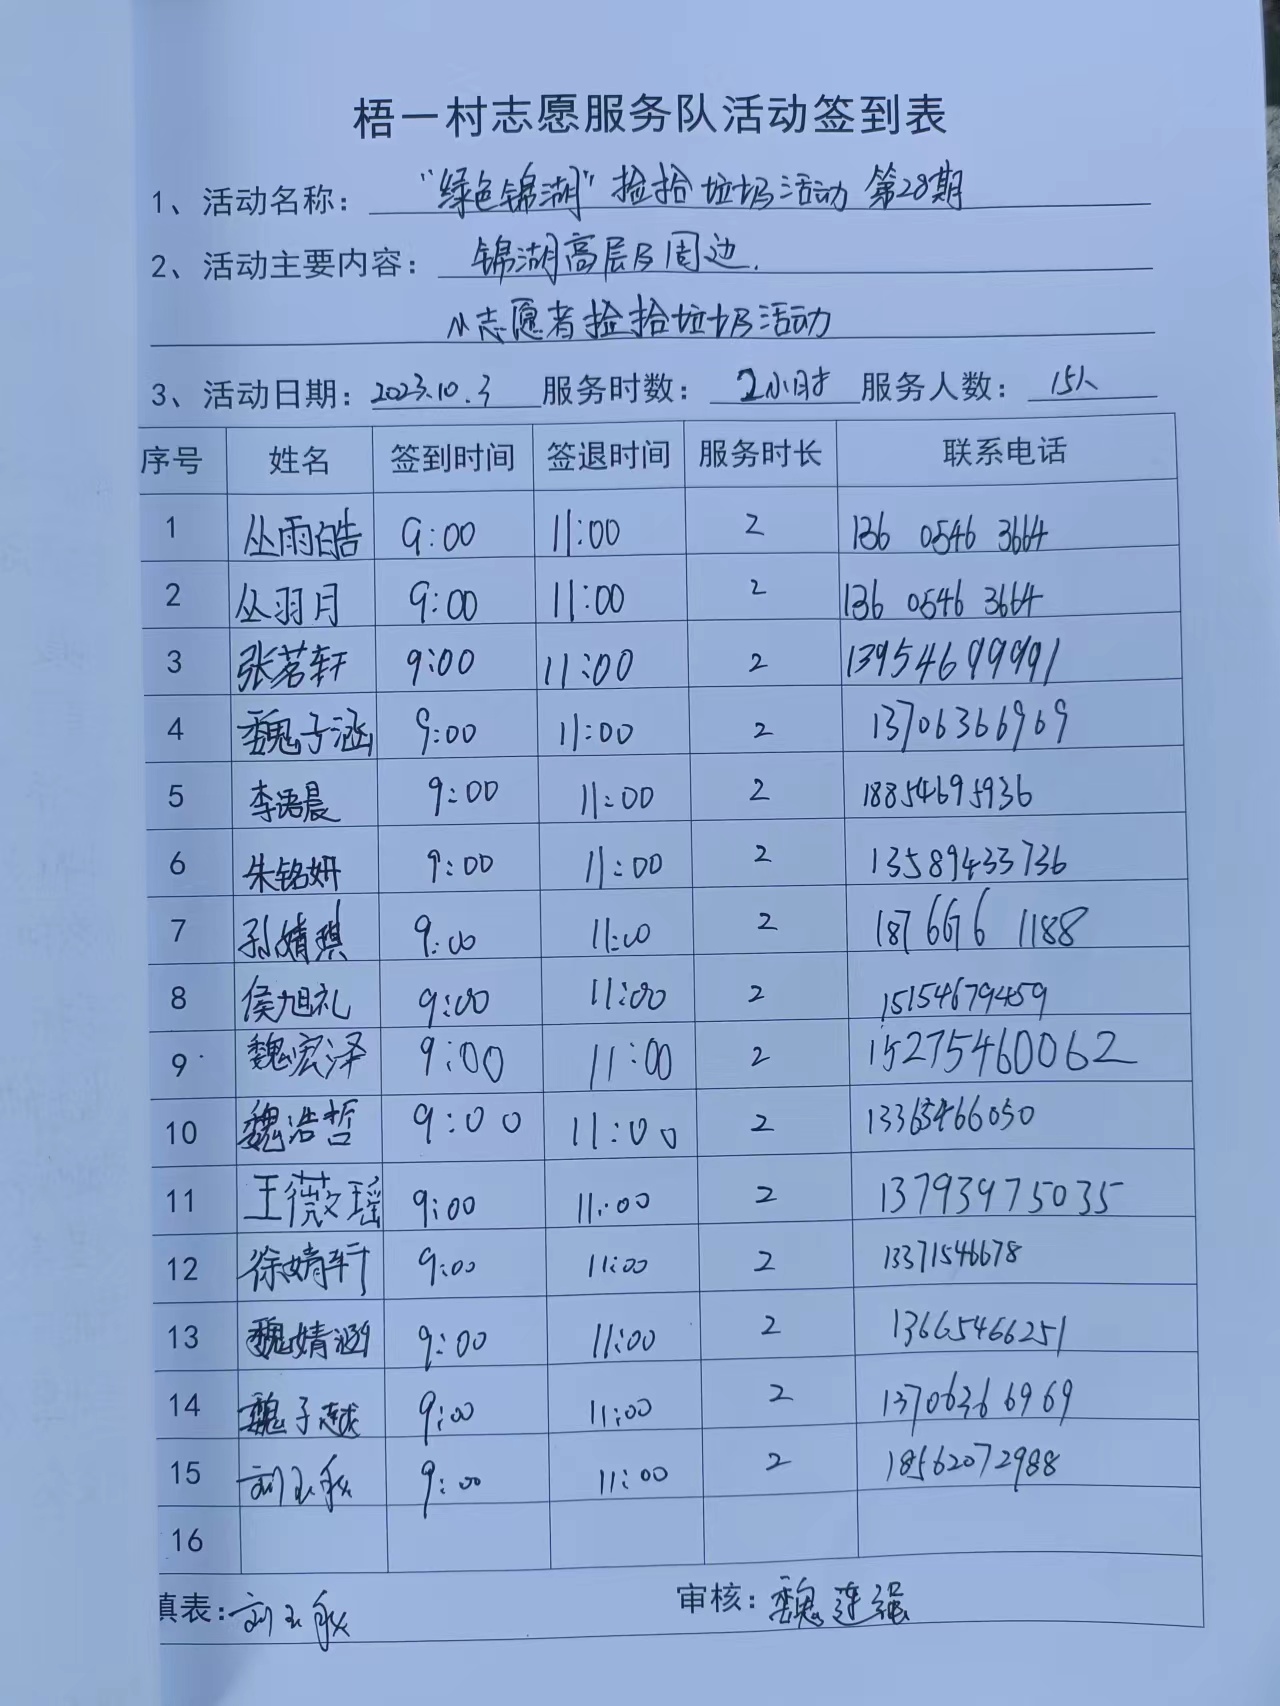 梧一村志愿服务队活动签到表
1、活动名称： “绿色锦湖”捡拾垃圾活动 第28期
2、活动主要内容： 锦湖高层及周边.
小志愿者捡拾垃圾活动
3、活动日期：2023.10.3 服务时数：2小时 服务人数：15人
序号 姓名 签到时间 签退时间 服务时长 联系电话
1 丛雨皓 9:00 11:00 2 136 0546 3664
2 丛羽月 9:00 11:00 2 136 0546 3664
3 张茗轩 9:00 11:00 2 13954699991
4 魏子涵 9:00 11:00 2 13706366969
5 李语晨 9:00 11:00 2 18854695936
6 朱铭妍 9:00 11:00 2 13589433736
7 孙婧琪 9:00 11:00 2 187 6676 1188
8 侯旭礼 9:00 11:00 2 15154679459
9 魏宏泽 9:00 11:00 2 15275460062
10 魏浩哲 9:00 11:00 2
11 王薇瑶 9:00 11:00 2 13793975035
12 徐婧轩 9:00 11:00 2 13371546678
13 魏婧涵 9:00 11:00 2 13665466251
14 魏子越 9:00 11:00 2 13706366969
15 刘玉秋 9:00 11:00 2 18562072988
16
填表：刘玉秋 审核：魏连强